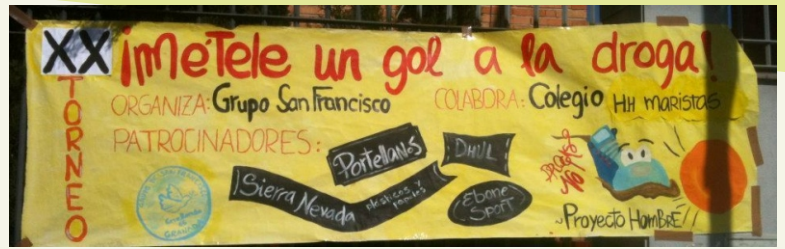 XX ¡MéTele un gol a la droga!
TORNEO
ORGANIZA: Grupo San Francisco
COLABORA: Colegio HH maristas
PATROCINADORES:
Portellanos
DHUL
Sierra Nevada
plasticos y
Ebone
Sport
Proyecto HomBRE